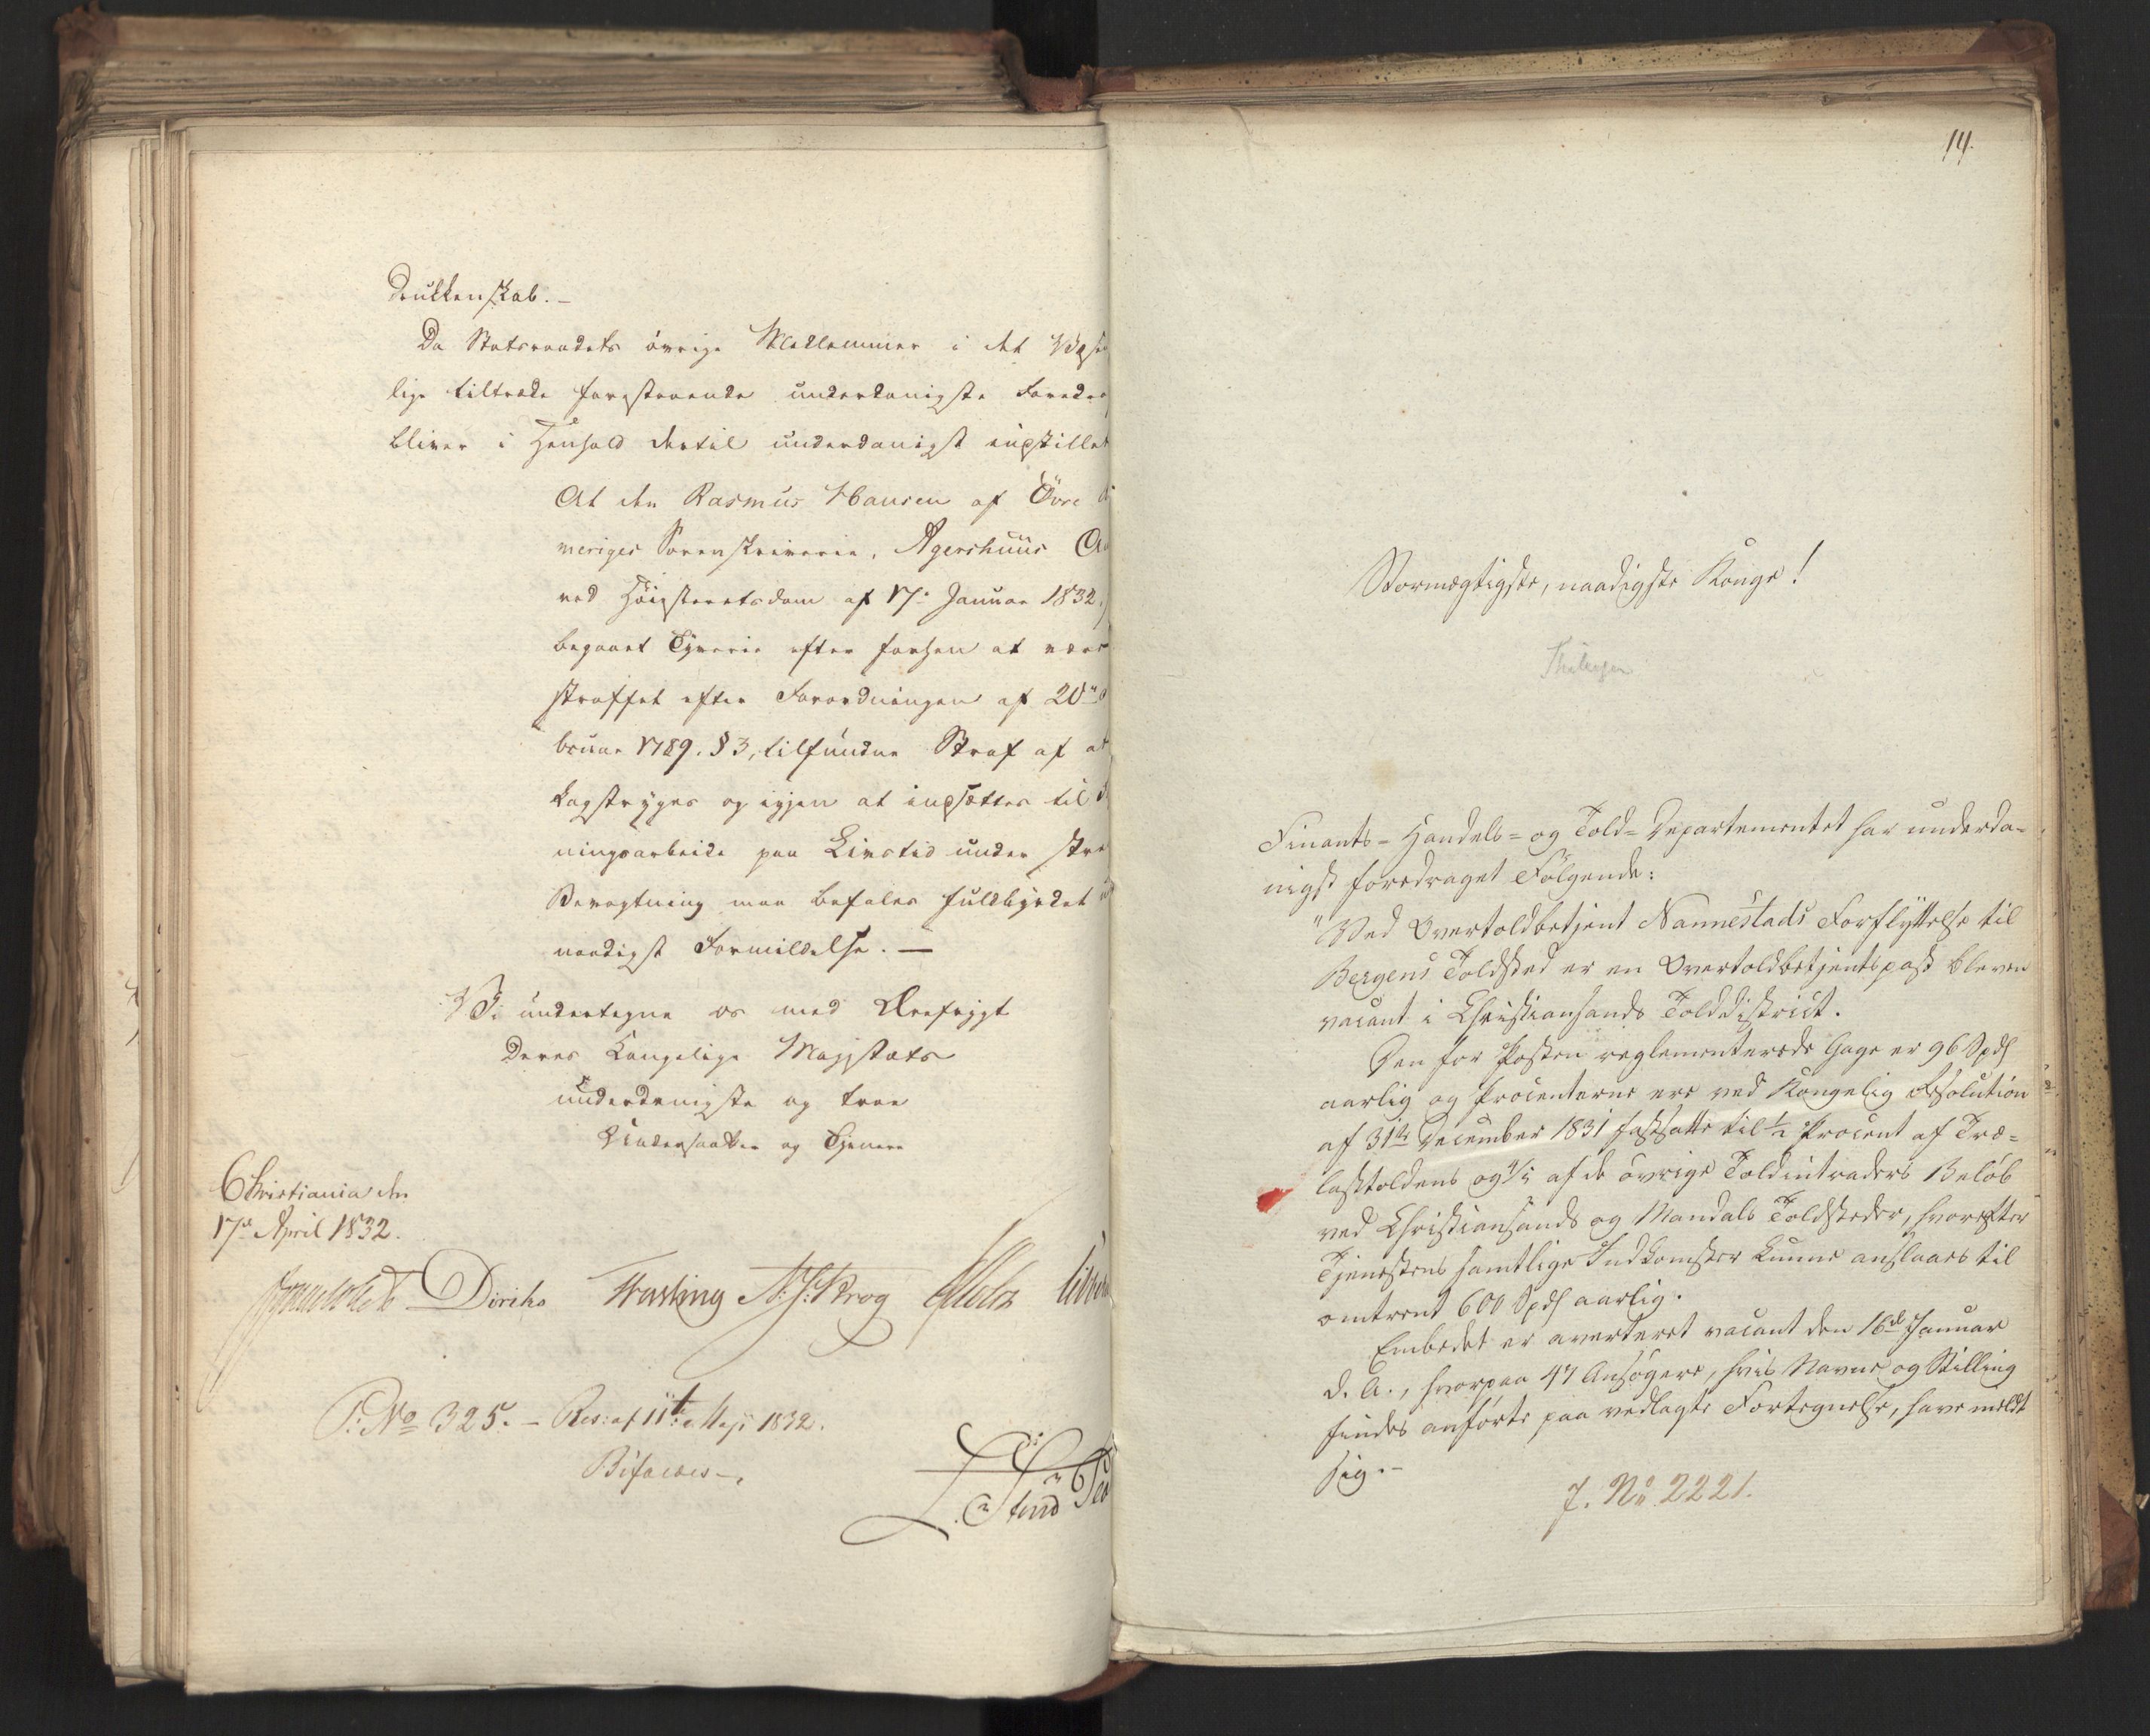 Drukkenskab. –
Da Statsraadets øvrige Medlemmer i det Væsent
lige tiltræde forestaaende underdanigste Foredrag
bliver i Henhold dertil underdanigst indstillet
At den Rasmus Hansen af Övre
meriges Sorenskriverie, Agershuus
ved Høiesteretsdom af 17. Januar 1832,
begaaet Tyverie efter forhen at være
straffet efter Forordningen af 20de
bruar 1789. § 3, tilfundne Straf af at
kagstryges og igjen at indsættes til
ningsarbeide paa Livstid under
Bevogtning maa befales fuldbyrdet
naadigst Formildelse. –
Vi undertegne os med Ærefrygt
Deres Kongelige Majestæts
underdanigste og troe
Undersaatter og Tjenere
Christiania den
17de April 1832.
Diriks Fasting N: J: Krog Holst
P: No 325. – Res: af 11te Maji 1832.
Bifaldes –.
14.
Stormægtigste, naadigste Konge!
Finants- Handels- og Told-Departementet har underda-
nigst foredraget Følgende:
"Ved Overtoldbetjent Nannestads Forflyttelse til
Bergens Toldsted er en Overtoldbetjentspost bleven
vacant i Christiansands Tolddistrict.
Den for Posten reglementerede Gage er 96 Spd
aarlig og Procenterne ere ved Kongelig Resolution
af 31te December 1831 fastsatte til ½ Procent af Træ-
lasttoldens og 4/5 af de øvrige Toldintraders Beløb
ved Christiansands og Mandals Toldsteder, hvorefter
Tjenestens samtlige Indkomster kunne anslaaes til
omtrent 600 Spd aarlig.
Embedet er averteret vacant den 16de Januar
d. A., hvorpaa 47 Ansøgere, hvis Navne og Stilling
findes anførte paa vedlagte Fortegnelse, have meldt
sig. –
J. No 2221.